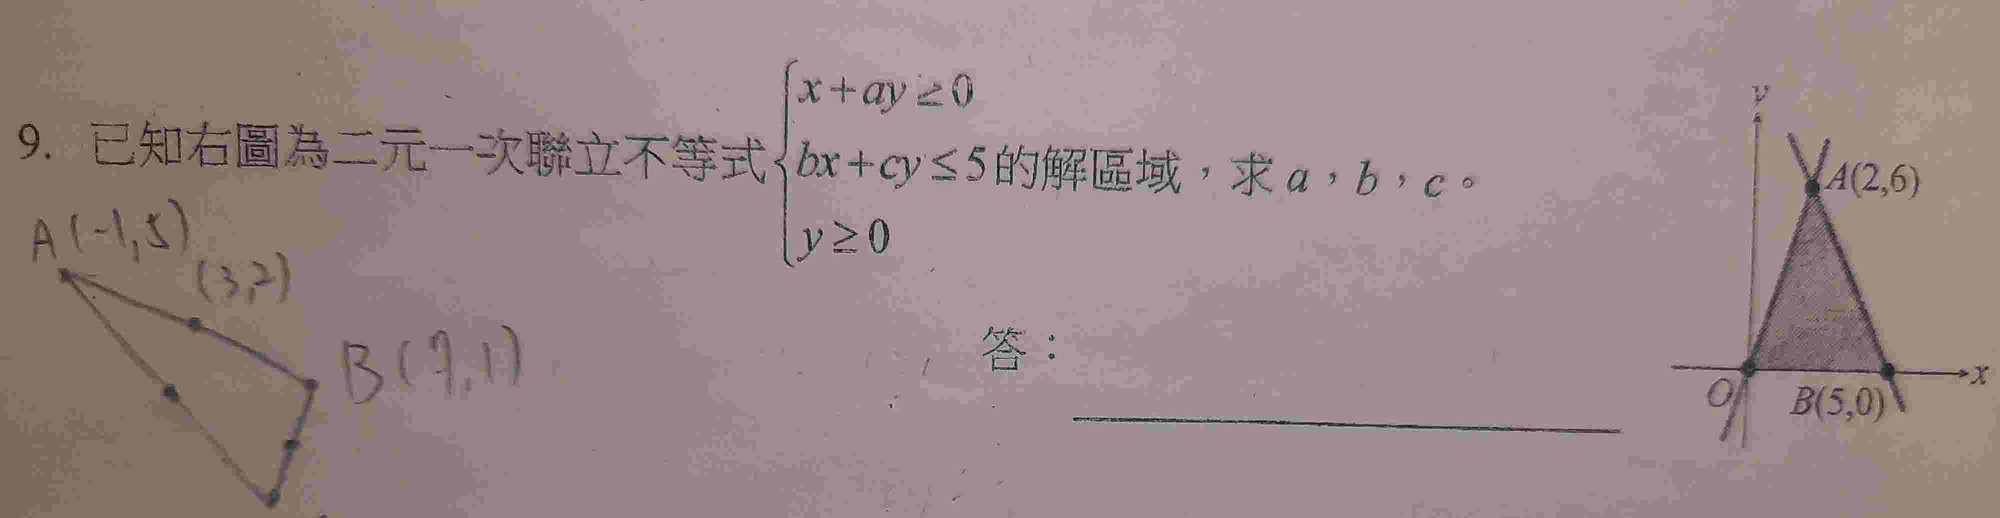 x+ay≥0
9. 已知右圖為二元一次聯立不等式 bx+cy≤5 的解區域，求 a，b，c。
y≥0
A(-1,5)
(3,2)
B(7,1)
答：
y
A(2,6)
x
O
B(5,0)